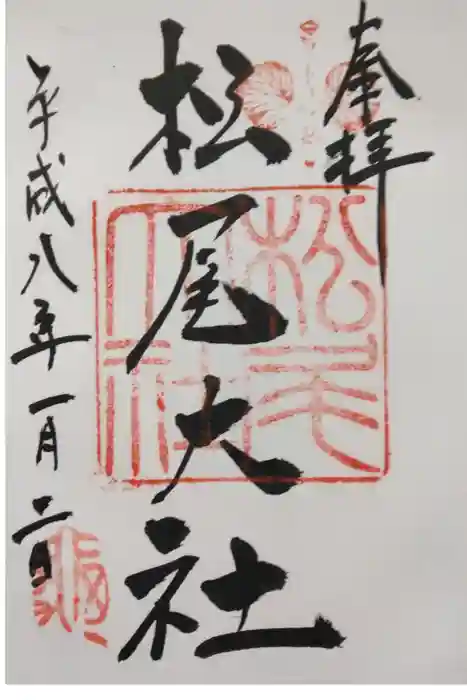 奉拝
松尾大社
平成八年一月二日
松尾大社